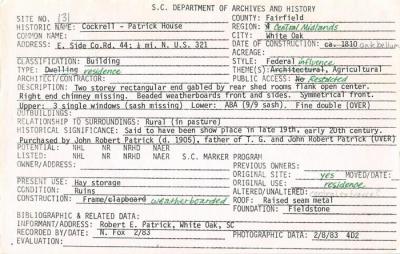 S.C. DEPARTMENT OF ARCHIVES AND HISTORY
SITE NO. 131
COUNTY: Fairfield
HISTORIC NAME: Cockrell - Patrick House
REGION: Central Midlands
COMMON NAME:
CITY: White Oak
ADDRESS: E. Side Co.Rd. 44; ½ mi. N. U.S. 321
DATE OF CONSTRUCTION: ca. 1810 antebellum
ACREAGE:
CLASSIFICATION: Building
STYLE: Federal influence
TYPE: Dwelling residence
THEME(S): Architectural, Agricultural
ARCHITECT/CONTRACTOR:
PUBLIC ACCESS: No Restricted
DESCRIPTION: Two storey rectangular end gabled by rear shed rooms flank open center.
Right end chimney missing. Beaded weatherboards front and sides. Symmetrical front.
Upper: 3 single windows (sash missing) Lower: ABA (9/9 sash). Fine double (OVER)
OUTBUILDINGS:
RELATIONSHIP TO SURROUNDINGS: Rural (in pasture)
HISTORICAL SIGNIFICANCE: Said to have been show place in late 19th. early 20th century.
Purchased by John Robert Patrick (d. 1905), father of T. G. and John Robert Patrick (OVER)
POTENTIAL: NHL NR NRHD NAER
LISTED: NHL NR NRHD NAER S.C. MARKER PROGRAM
OWNER/ADDRESS:
PREVIOUS OWNERS:
ORIGINAL SITE: yes MOVED/DATE:
PRESENT USE: Hay storage
ORIGINAL USE: residence
CONDITION: Ruins
ALTERED/UNALTERED:
CONSTRUCTION: Frame/clapboard weatherboarded
ROOF: Raised seam metal
FOUNDATION: Fieldstone
BIBLIOGRAPHIC & RELATED DATA:
INFORMANT/ADDRESS: Robert E. Patrick, White Oak, SC
RECORDED BY/DATE: N. Fox 2/83
PHOTOGRAPHIC DATA: 2/8/83 4D2
EVALUATION: